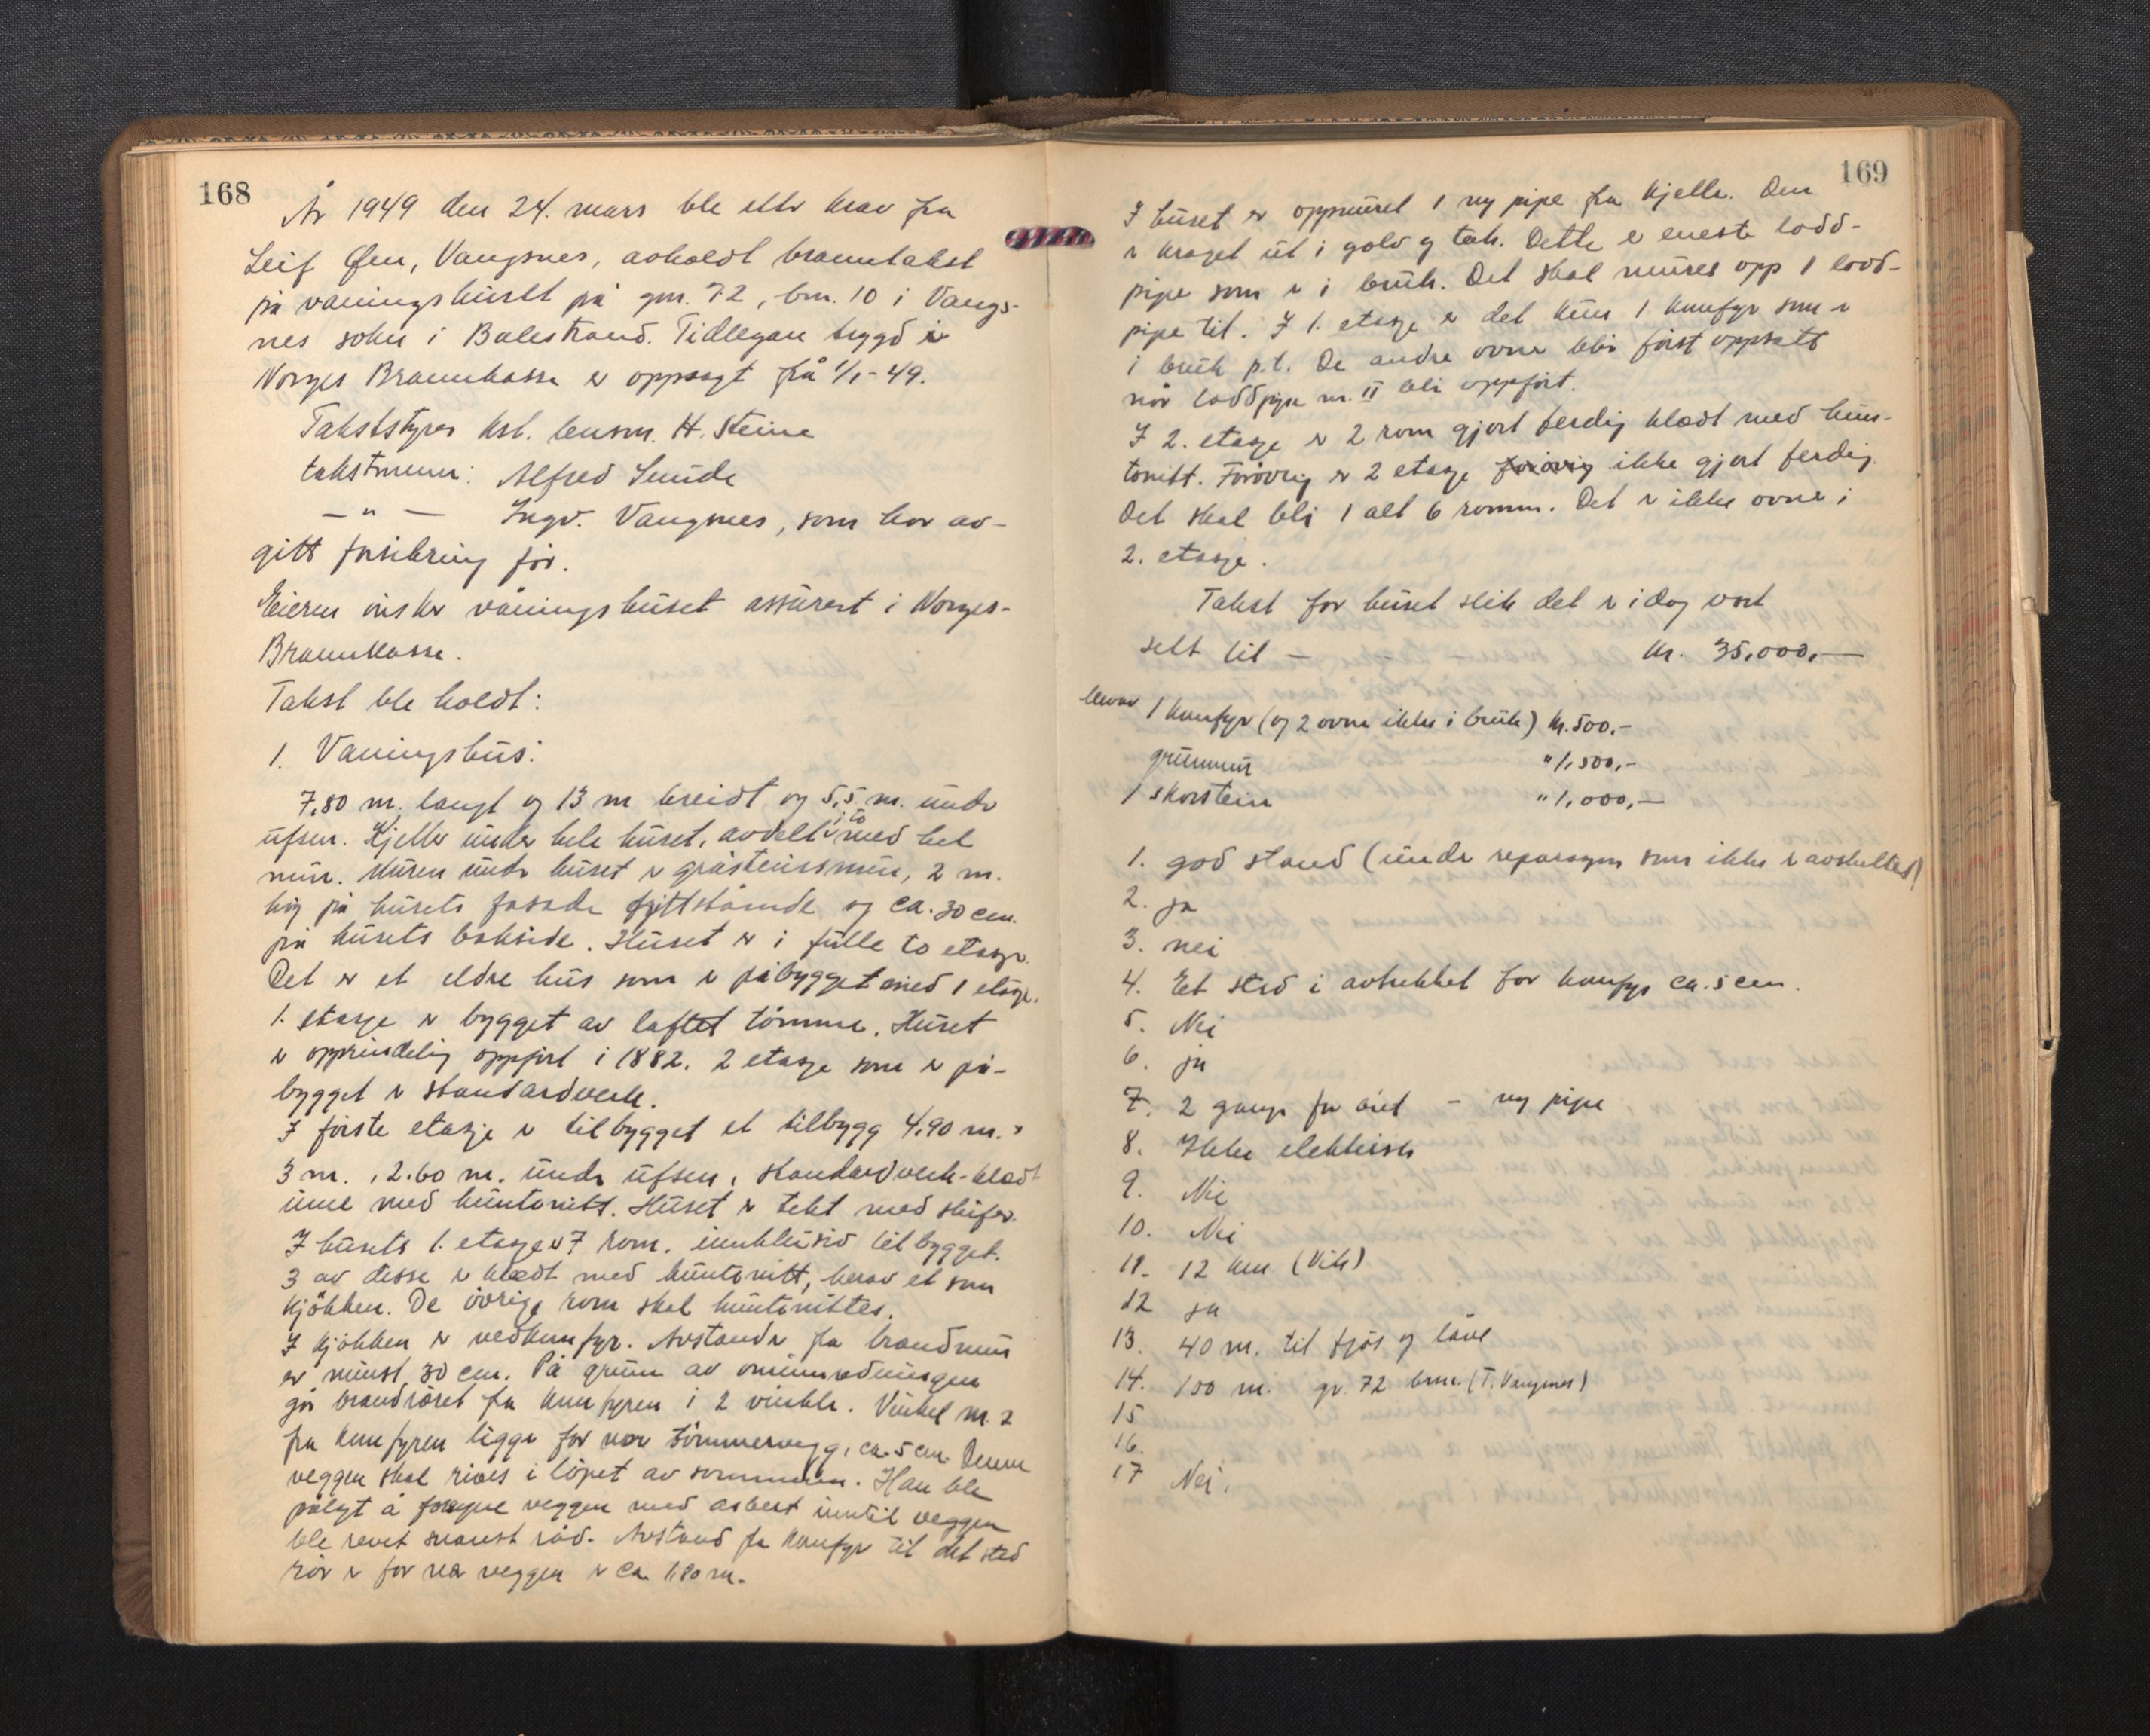 168
År 1949 den 24. mars ble etter krav fra
Leif Øen, Vangsnes, avholdt branntakst
på våningshuset på gnr. 72, bnr. 10 i Vangs-
nes sokn i Balestrand. Tidlegare trygd i
Norges Brannkasse er oppsagt frå 1/1-49.
Takststyrer kst. lensm. H. Steine
takstmenn: Alfred Sunde
— " — Ingv. Vangsnes, som har av-
gitt forsikring før.
Eieren ønsker våningshuset assurert i Norges-
Brannkasse.
Takst ble holdt:
1. Våningshus:
7,80 m. langt og 13 m breidt og 5,5 m. under
ufsen. Kjeller under hele huset, avdelt i to med hel
mur. Muren under huset er gråsteinsmur, 2 m.
høg på husets fasade frittståande og ca. 30 cm.
på husets bakside. Huset er i fulle to etasjer.
Det er et eldre hus som er påbygget med 1 etasje.
1. etasje er bygget av laftet tømmer. Huset
er opprindelig oppført i 1882. 2 etasje som er på-
bygget er standardverk.
I første etasje er tilbygget et tilbygg 4,90 m. x
3 m., 2.60 m. under ufsen, standardverk-klædt
inne med huntonitt. Huset er tekt med skifer.
I husets 1. etasje er 7 rom. innklusiv tilbygget.
3 av disse er klædt med huntonitt, herav et som
kjøkken. De øvrige rom skal huntonittes.
I kjøkken er vedkomfyr. Avstander fra brandmur
er minst 30 cm. På grunn av ominnredningen
går brandrøret fra komfyren i 2 vinkler. Vinkel nr. 2
fra komfyren ligger for nær tømmervegg, ca. 5 cm. Denne
veggen skal rives i løpet av sommeren. Han ble
pålagt å forsyne veggen med asbest inntil veggen
ble revet snarest råd. Avstand fra komfyr til det sted
rør er for nær veggen er ca 1,80 m.
169
I huset er oppmuret 1 ny pipe fra kjeller. Den
er kraget ut i golv og tak. Dette er eneste lodd-
pipe som er i bruk. Det skal mures opp 1 lodd-
pipe til. I 1. etasje er det kun 1 komfyr som er
i bruk p.t. De andre ovner blir først oppsatt
når loddpipe nr. II blir oppført.
I 2. etasje er 2 rom gjort ferdig klædt med hun-
tonitt. Forøvrig er 2 etasje forøvrig ikke gjort ferdig.
Det skal bli i alt 6 rommm. Det er ikke ovner i
2. etasje.
Takst for huset slik det er i dag vart
sett til — kr. 35.000,—
herav 1 komfyr (og 2 ovner ikke i bruk) kr. 500.-
grunnmur " 1,500,-
1 skorstein " 1,000,—
1. god stand (under reparasjon som ikke er avsluttet)
2. ja
3. nei
4. Et sted i avtrekket for komfyr ca. 5 cm.
5. Nei
6. ja
7. 2 ganger for året - ny pipe
8. Ikke elektrisk
9. Nei
10. Nei
11. 12 km (Vik)
12 ja
13. 40 m. til fjøs og låve
14. 100 m. gr. 72 bnr. (T. Vangsnes)
15
16.
17 Nei.